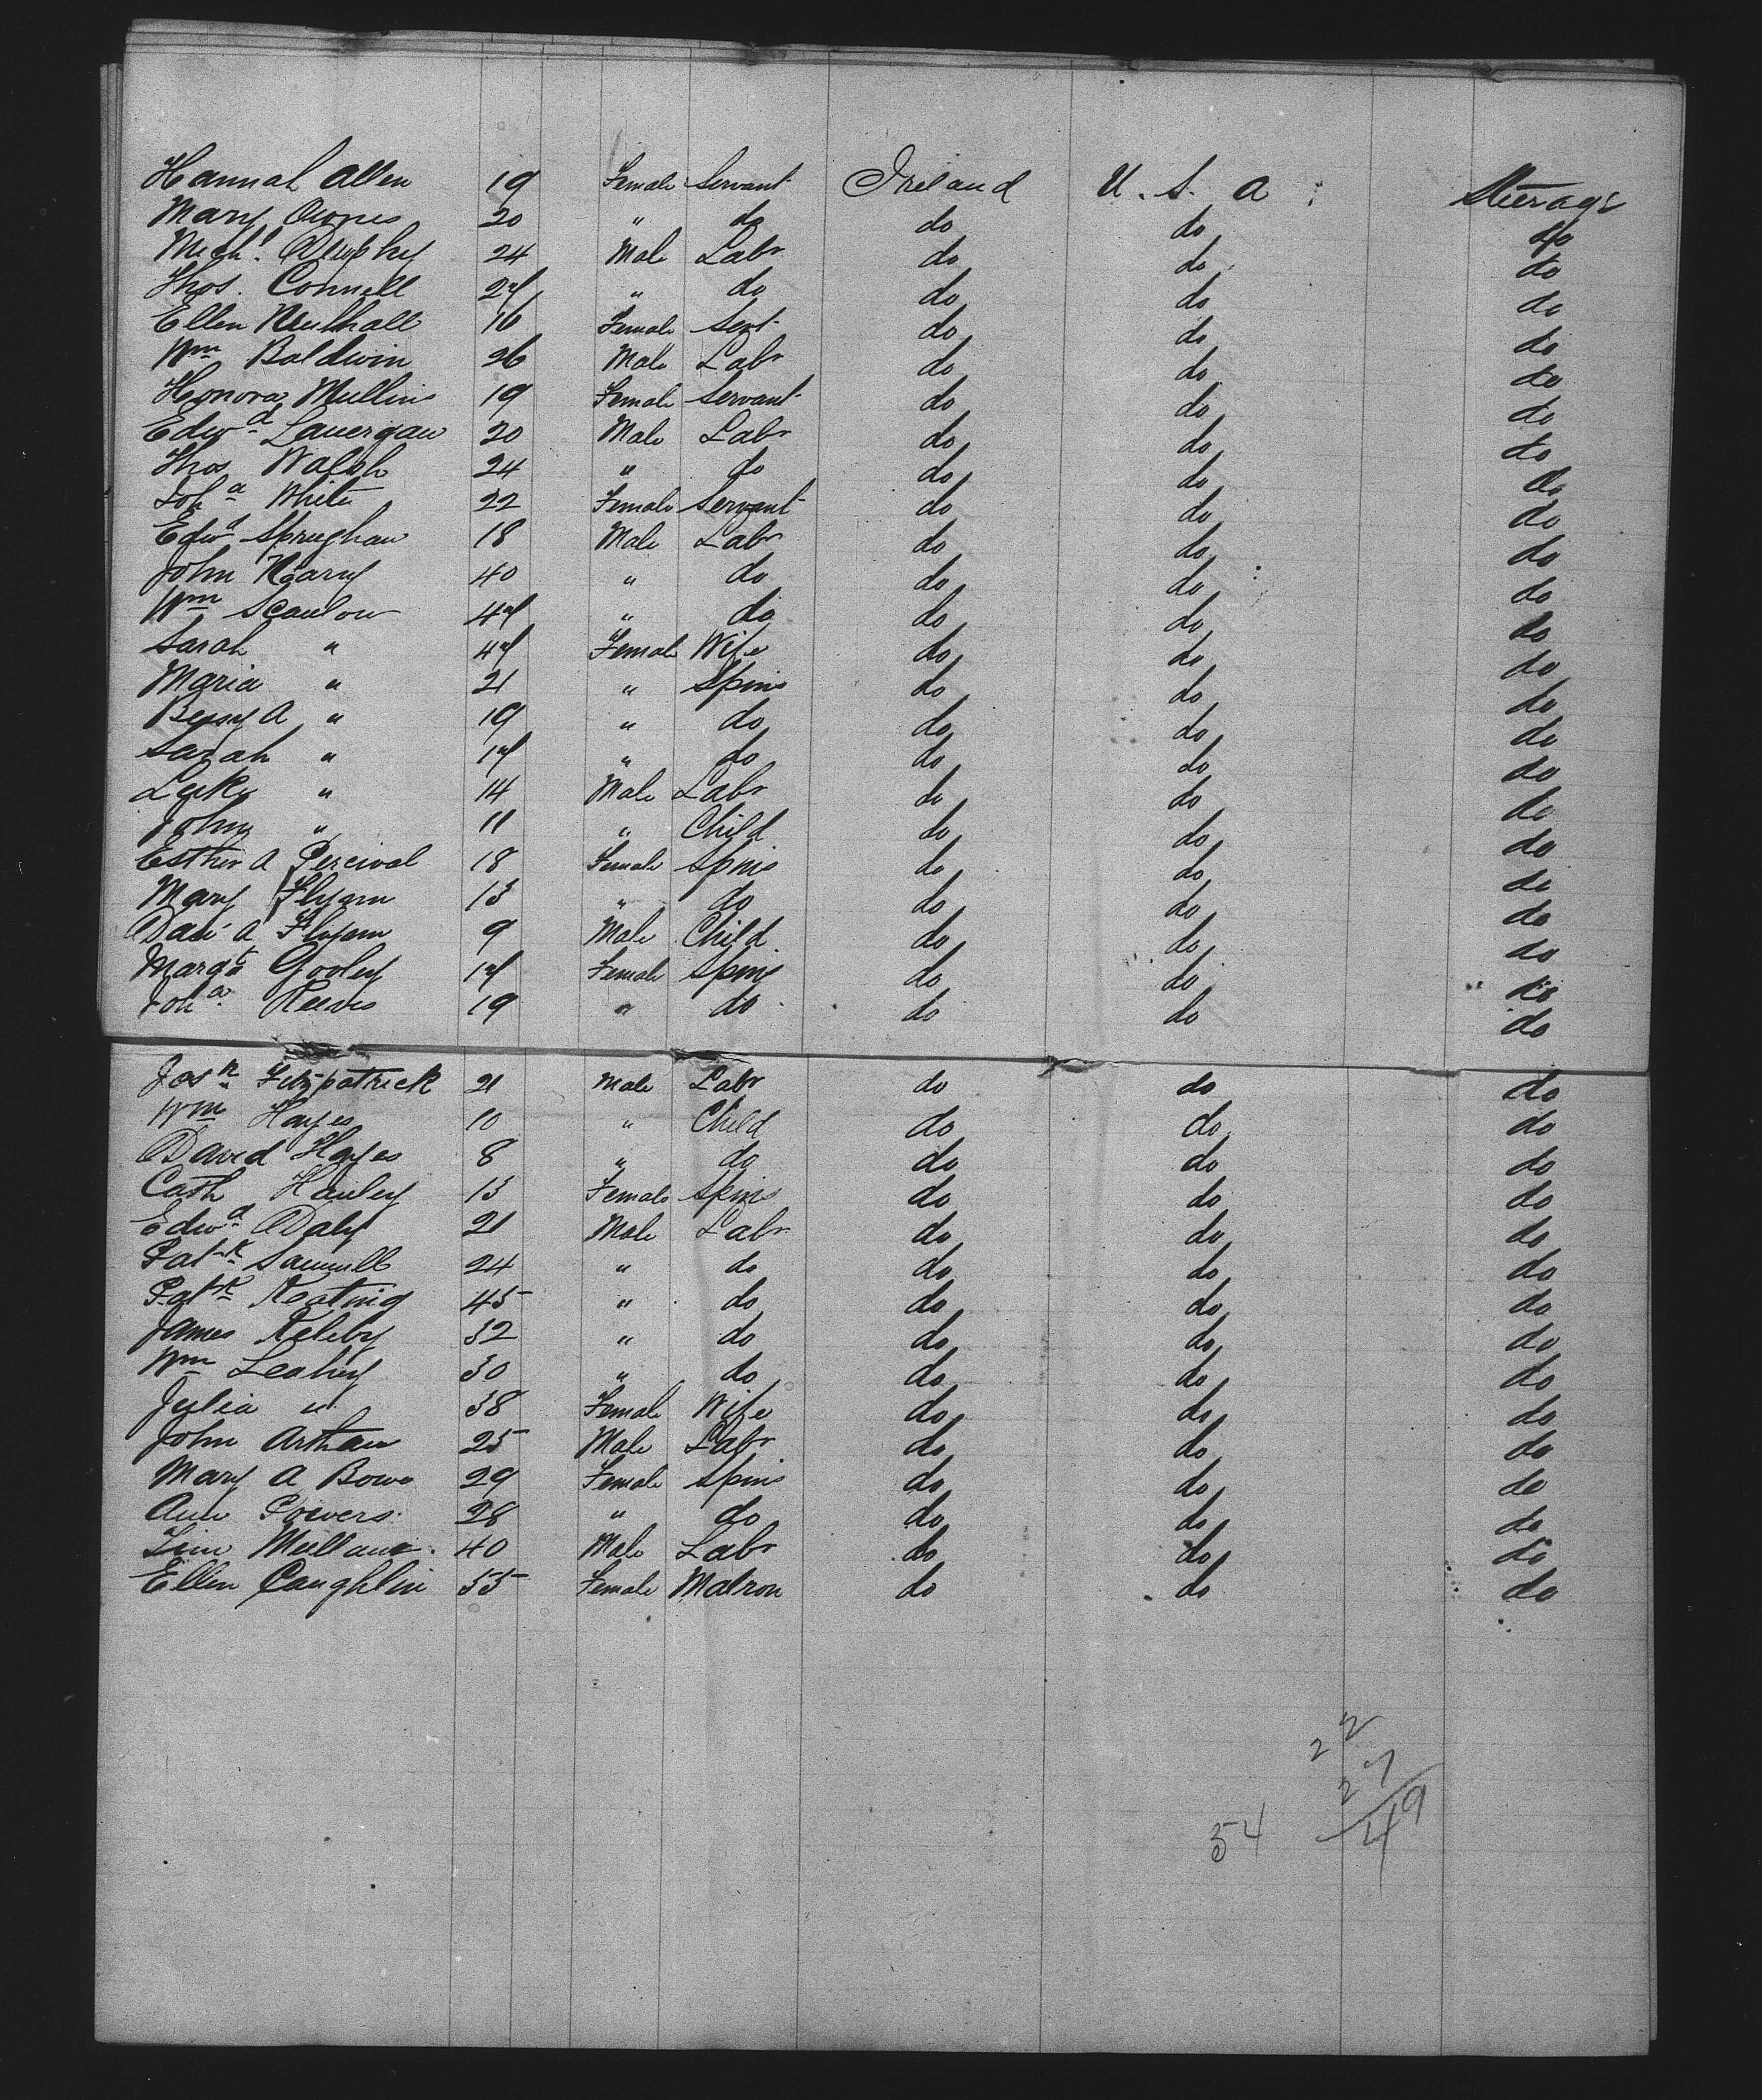 Hannah Allen 19 Female Servant Ireland U. S. A Steerage
Mary 20 " do do do do
Mich.l 24 Male Labr do do do
Thos. Connell 24 " do do do do
Ellen 16 Female Sevt do do do
Wm Baldwin 26 Male Labr do do do
Honora Mullins 19 Female Servant do do do
Edwd 20 Male Labr do do do
Thos Walsh 24 " do do do do
Joha White 22 Female Servant do do do
Edwd 18 Male Labr do do do
John 40 " do do do do
Wm Scanlon 44 " do do do do
Sarah " 44 Female Wife do do do
Maria " 21 " Spins do do do
Bessy A " 19 " do do do do
Sarah " 14 " do do do do
Luke " 14 Male Labr do do do
John " 11 " Child do do do
Esther A Percival 18 Female Spins do do do
Mary Flynn 13 " do do do do
Flynn 9 Male Child do do do
Margt Gooley Female Spins do do do
Joha 19 " do do do do
Josh Fitzpatrick 21 Male Labr do do do
Wm Hayes 10 " Child do do do
David Hayes 8 " do do do do
Cath Hanley 13 Female Spins do do do
Edwd Daly 21 Male Labr do do do
Patk 24 " do do do do
Patk Keating 45 " do do do do
James 32 " do do do do
Wm Leahy 30 " do do do do
Julia " 38 Female Wife do do do
John 25 Male Labr do do do
Mary A Bowe 29 Female Spins do do do
Ann Powers 28 " do do do do
Tim Mullane 40 Male Labr do do do
Ellen Caughlin 55 Female Matron do do do
22
27
54 49